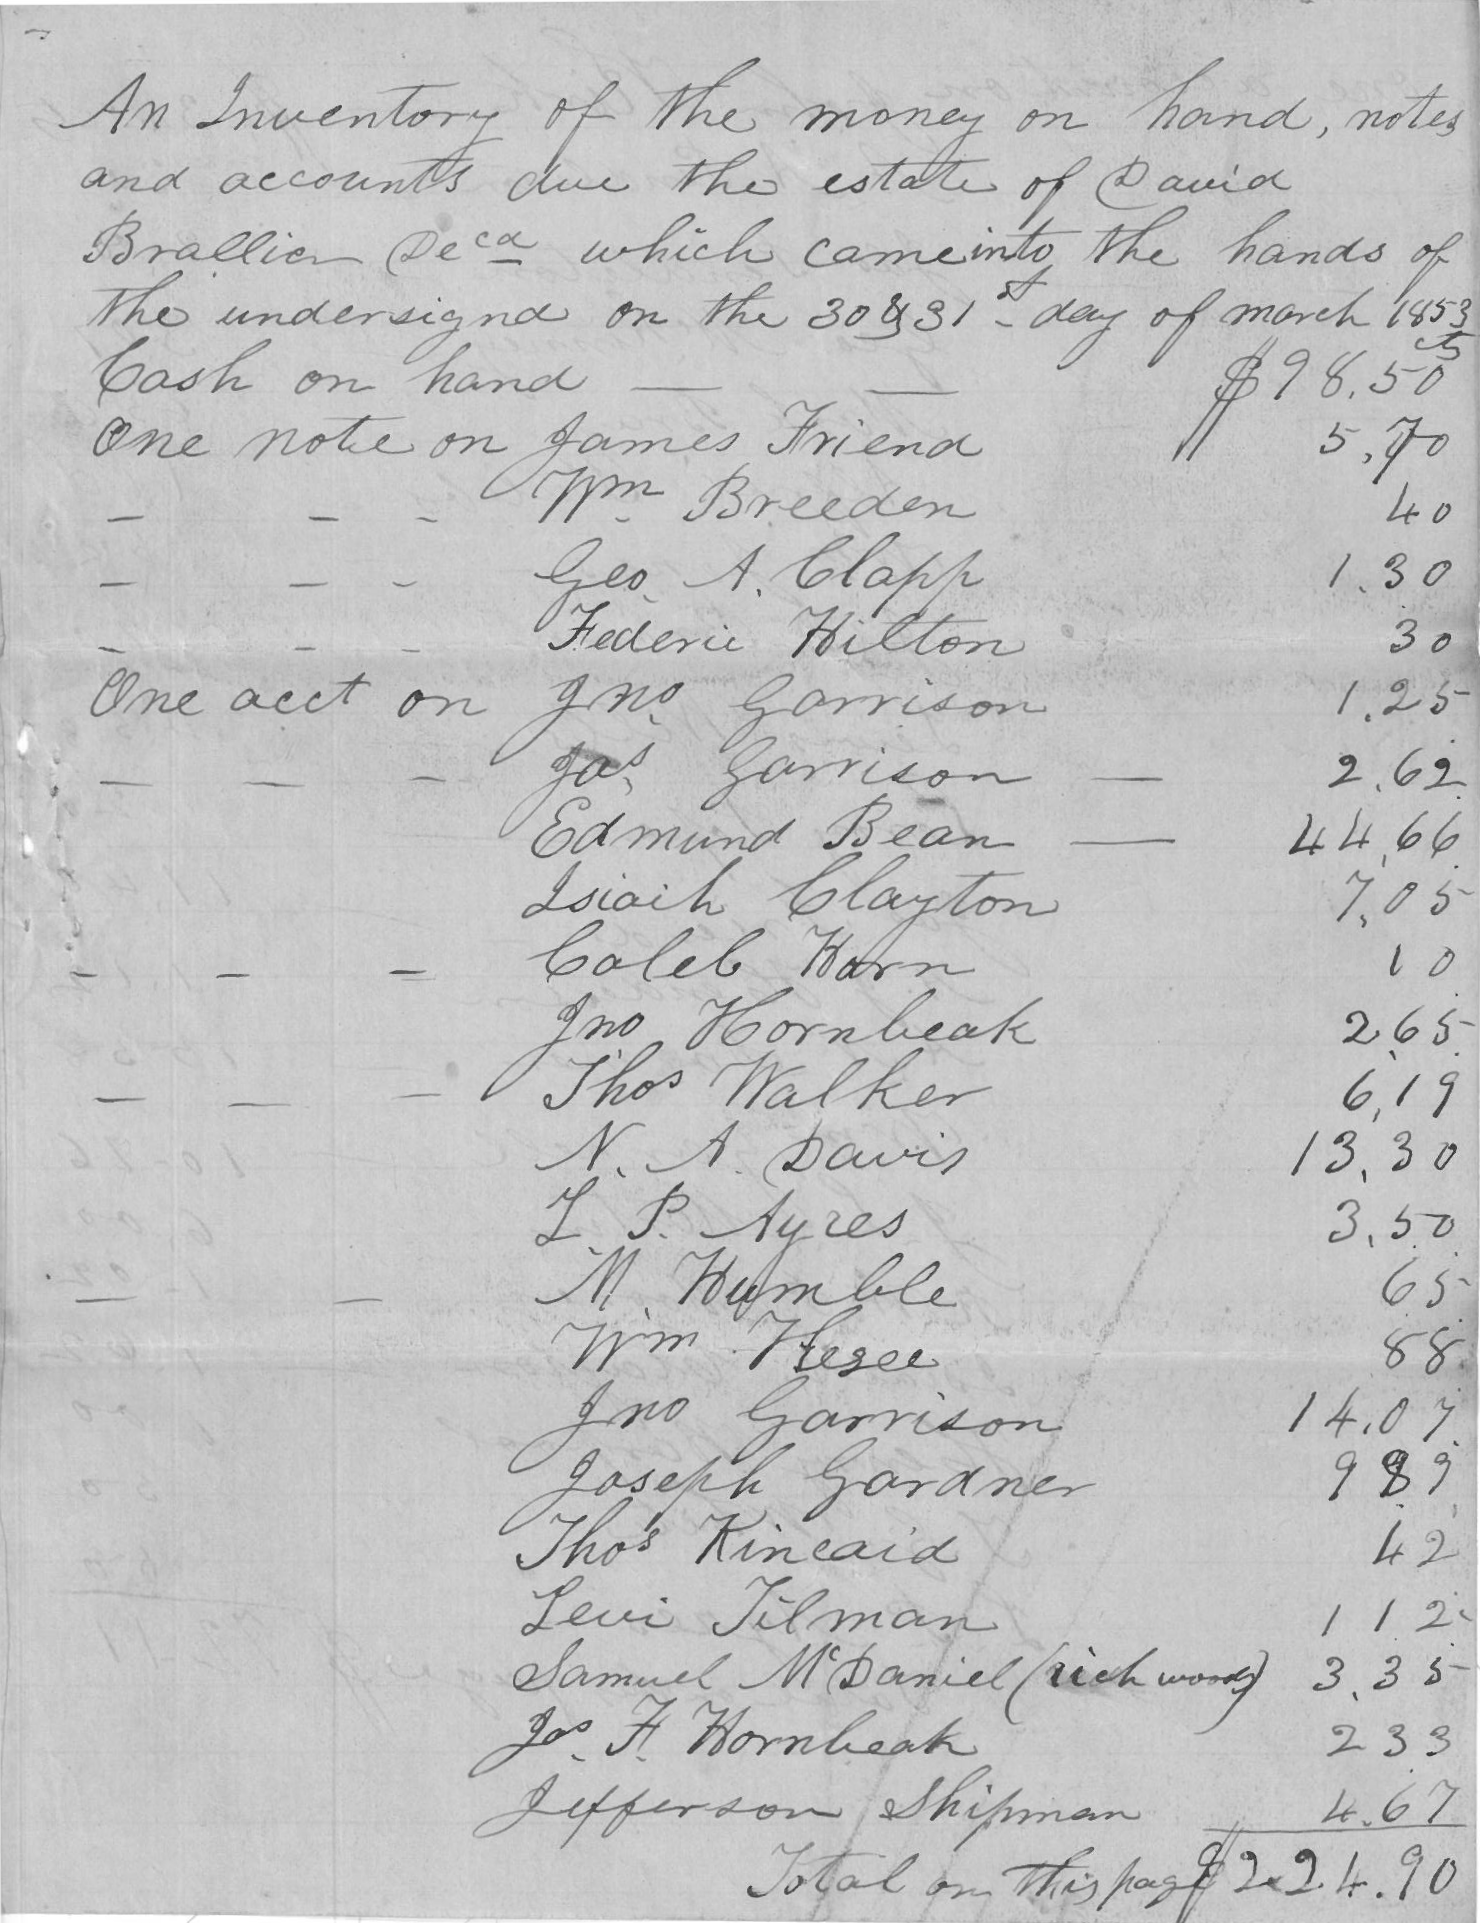 An Inventory of the money on hand, notes
and accounts due the estate of David
Brallier Decd which came into the hands of
the undersignd on the 30 & 31st day of march 1853
cts
Cash on hand — — $98.50
One note on James Friend 5,70
- - - Wm Breeden 40
- - - Geo. A. Clapp 1.30
- - - Federic Hilton 30
One acct on Jno. Garrison 1.25
- - - Jas. Garrison — 2.62
Edmund Bean — 44,66
Isiaih Clayton 7,05
- - - Caleb Horn 10
Jno Hornbeak 2,65
- - - Thos Walker 6,19
N. A. Davis 13,30
L. P. Ayres 3,50
- - M. Humble 65
Wm 88
Jno Garrison 14.07
Joseph Gardner 9 89
Thos Kincaid 42
Levi Tilman 1 12
Samuel McDaniel (rich woods) 3,35
Jas. H. Hornbeak 2 33
Jefferson Shipman 4.67
Total on this page $224.90